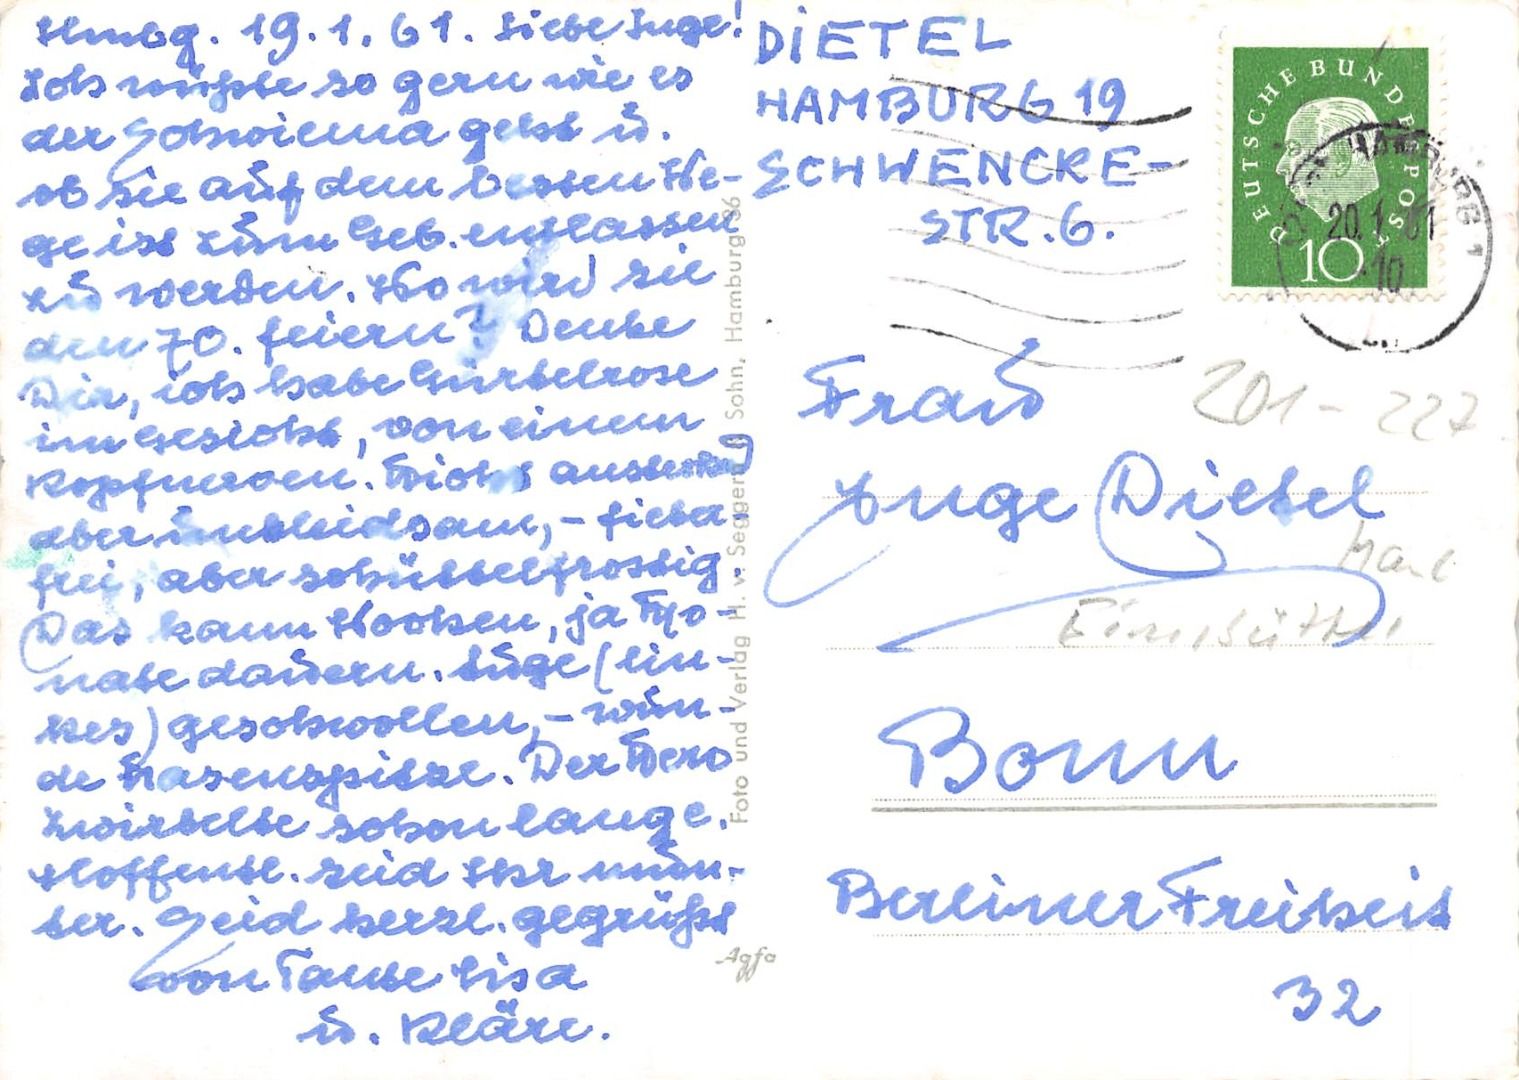 Hmbg. 19.1.61. Liebe Inge!
Ich wüßte so gern wie es
der Schwiema geht u.
ob sie auf dem besten We-
ge ist zum Geb. entlassen
zu werden. Wo wird sie
den 70. feiern? Denke
Dir, ich habe Gürtelrose
im Gesicht, von einem
Kopfnerven. Nicht ansteckend
aber unleidsam, - fieber-
frei, aber schüttelfrostig.
Das kann Wochen, ja Mo-
nate dauern. Auge (lin-
kes) geschwollen, - wun-
de Nasenspitze. Der Nerv
zwirbelte schon lange.
Hoffentl. seid Ihr mun-
ter. Seid herzl. gegrüßt
von Tante Lisa
u. Kläre.
DIETEL
HAMBURG 19
SCHWENCKE-
STR. 6.
DEUTSCHE BUNDESPOST
10
HAMBURG 1
20.1.61
-10
Frau
201-227
Inge Dietel
Eimsbüttel
Bonn
Berliner Freiheit
32
Foto und Verlag H. v. Seggern & Sohn, Hamburg 36
Agfa